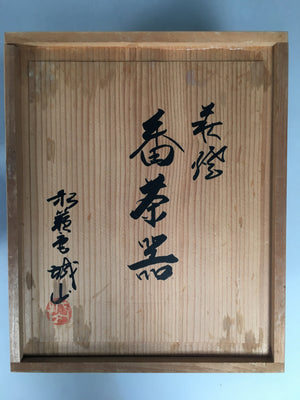 萩焼
番茶器
松蔭 城山